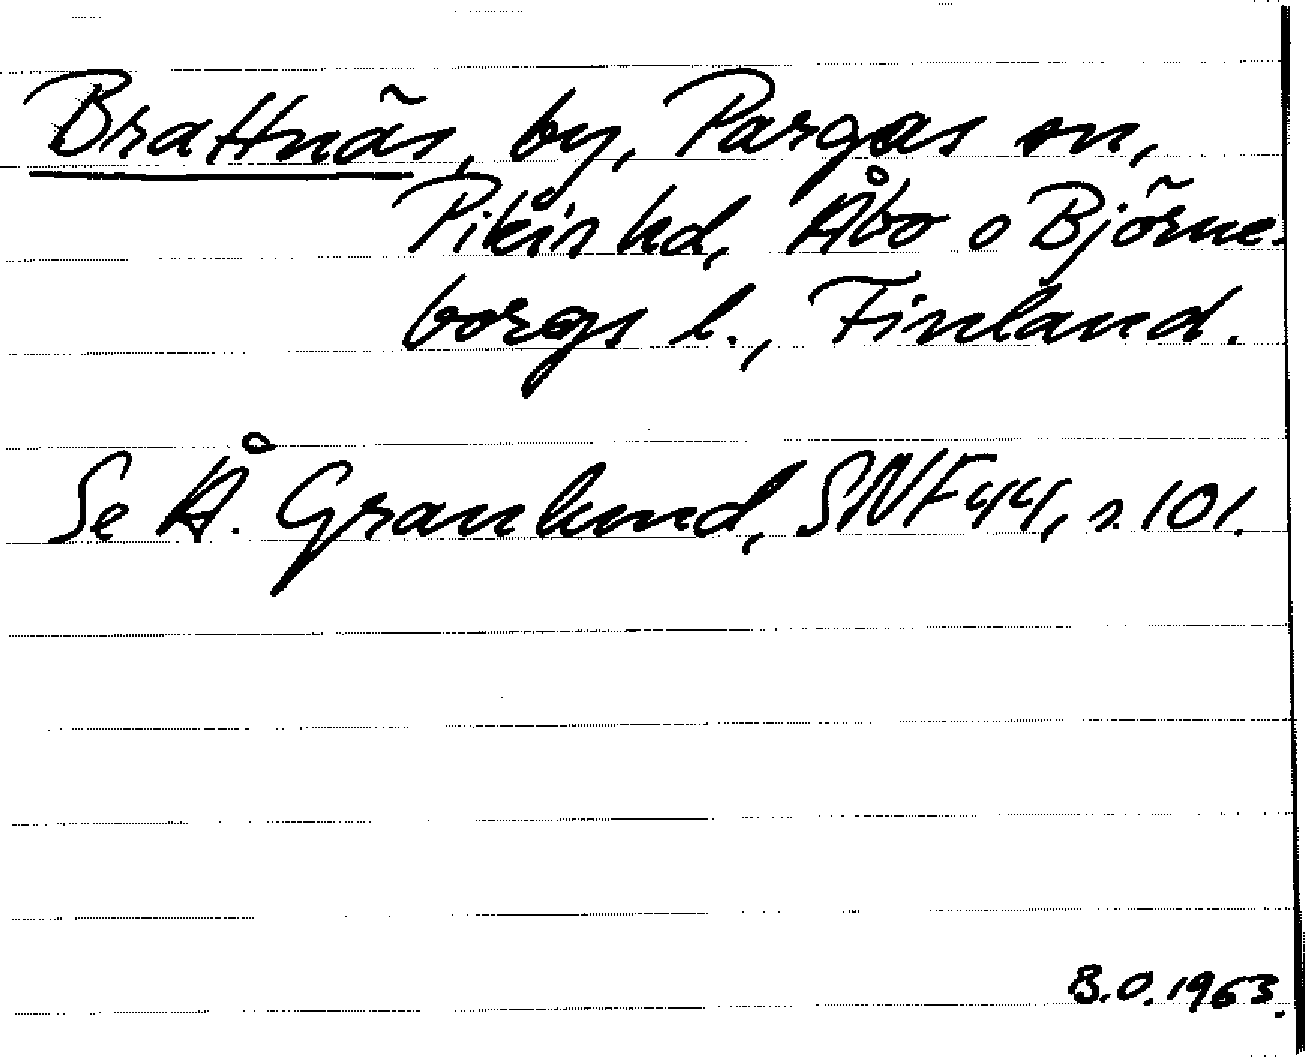 Brattnäs, by, Pargas sn,
Pikis hd, Åbo o Björne-
borgs l., Finland.
Se Å. Granlund, SNF 44, s. 101.
B.O. 1963.